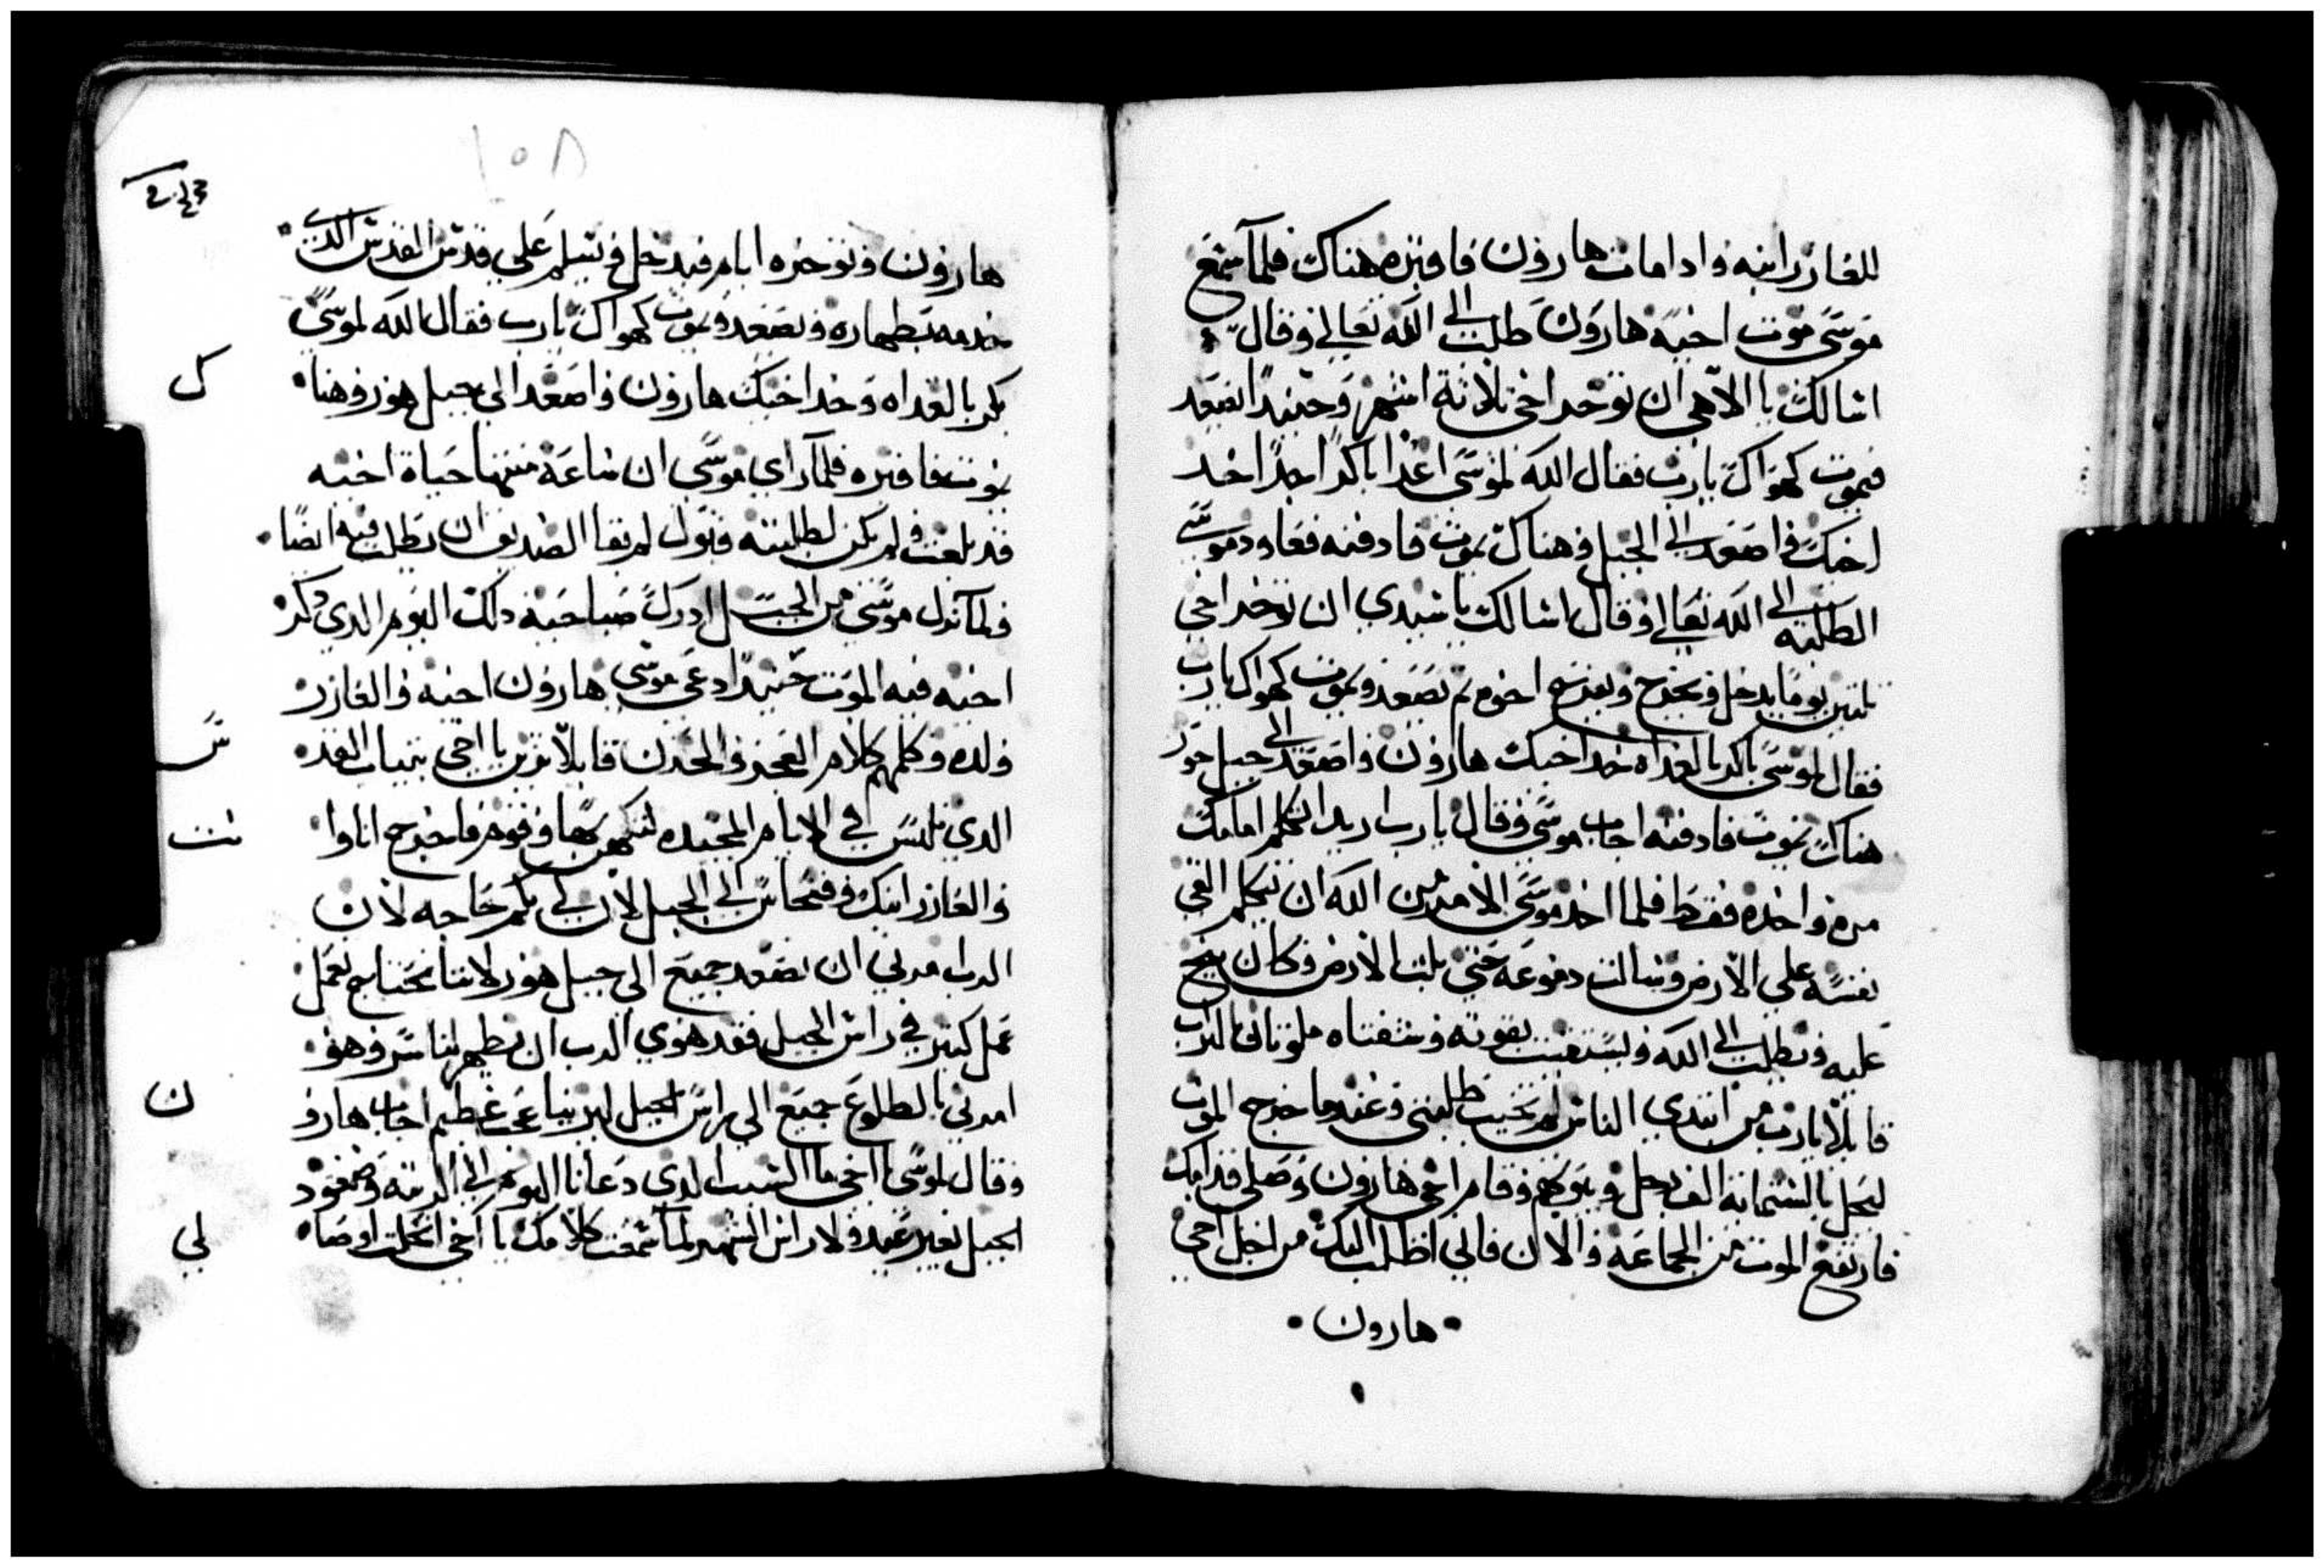 للغازر ابنه وادا مات هارون فاقبره هناك فلما سمع
موسى موت اخيه هارون طلب الى الله تعالى وقال
اسالك يا الاهي ان توخر اخي ثلاثة اشهر وحينيدا يصعد
فيموت كهواك يارب فقال الله لموسى اغدا باكرا جدا خد
اخيك واصعد الى الجبل وهناك يموت فادفنه فعاود موسى
الطلبه الى الله تعالى وقال اسالك يا سيدي ان توخر اخي
يوما يدخل ويخرج اخوه ثم يصعد ويموت كهواك يارب
فقال لموسى باكر بالغداه خد اخيك هارون واصعد الى جبل حور
هناك يموت فادفنه اجاب موسى وقال يارب اريد اتكلم امامك
مره واحده فقط فلما اخد موسى الامر من الله ان يتكلم القي
نفسه على الارض وسالت دموعه حتى بلت الارض وكان
عليه ويطلب الى الله ويستغيت بقوته وشفتاه التراب
قايلا يارب من ايدي الناس لم تخيب طلبتي وعندما خرج الموت
بالستماية الف رجل وقام اخي هارون وصلي قدامك
فارتفع الموت من الجماعه والان فاني اطلب اليك من اجل اخي
هارون
١٥٨
هارون وتوخره ايام فيدخل ويسلم على قدس القدس الدي
خدمه بطهاره ويصعد ويموت كهواك يارب فقال الله لموسى
بكر بالغداه وخد اخيك هارون واصعد الى جبل هور وهنا
يموت فاقبره فلما راي موسى ان ساعة منتهها حياة اخيه
قد بلغت ولم يكن لطلبته قبول لم يقا الصديق ان يطلب فيه ايضا
ولما نزل موسى من الجبل ادرك صباحية دلك اليوم الدي دكر
اخيه فيه الموت حينيدا دعى موسى هارون اخيه والغازر
ولده وكلمهم كلام العجز والحزن قايلا تزين يا اخي بتياب القد
الدي تلبس في الايام المجيده وقوم فاخرج انا وا
والغازر ابنك الى الجبل لان لي بكم حاجه لان
الرب امرني ان نصعد جميع الى جبل هور لاننا نحتاج نعمل
عمل كبير في راس الجبل فقد هوي الرب ان يظهر لنا سر وهو
امرني بالطلوع جميع الى راس الجبل عظيم اجاب هارو
وقال لموسى يا اخي ما السبب الدي دعانا اليوم الى وصعود
الجبل بغير عيد ولا راس الشهر لما سمعت كلامك يا اخي
ك
ن
لي